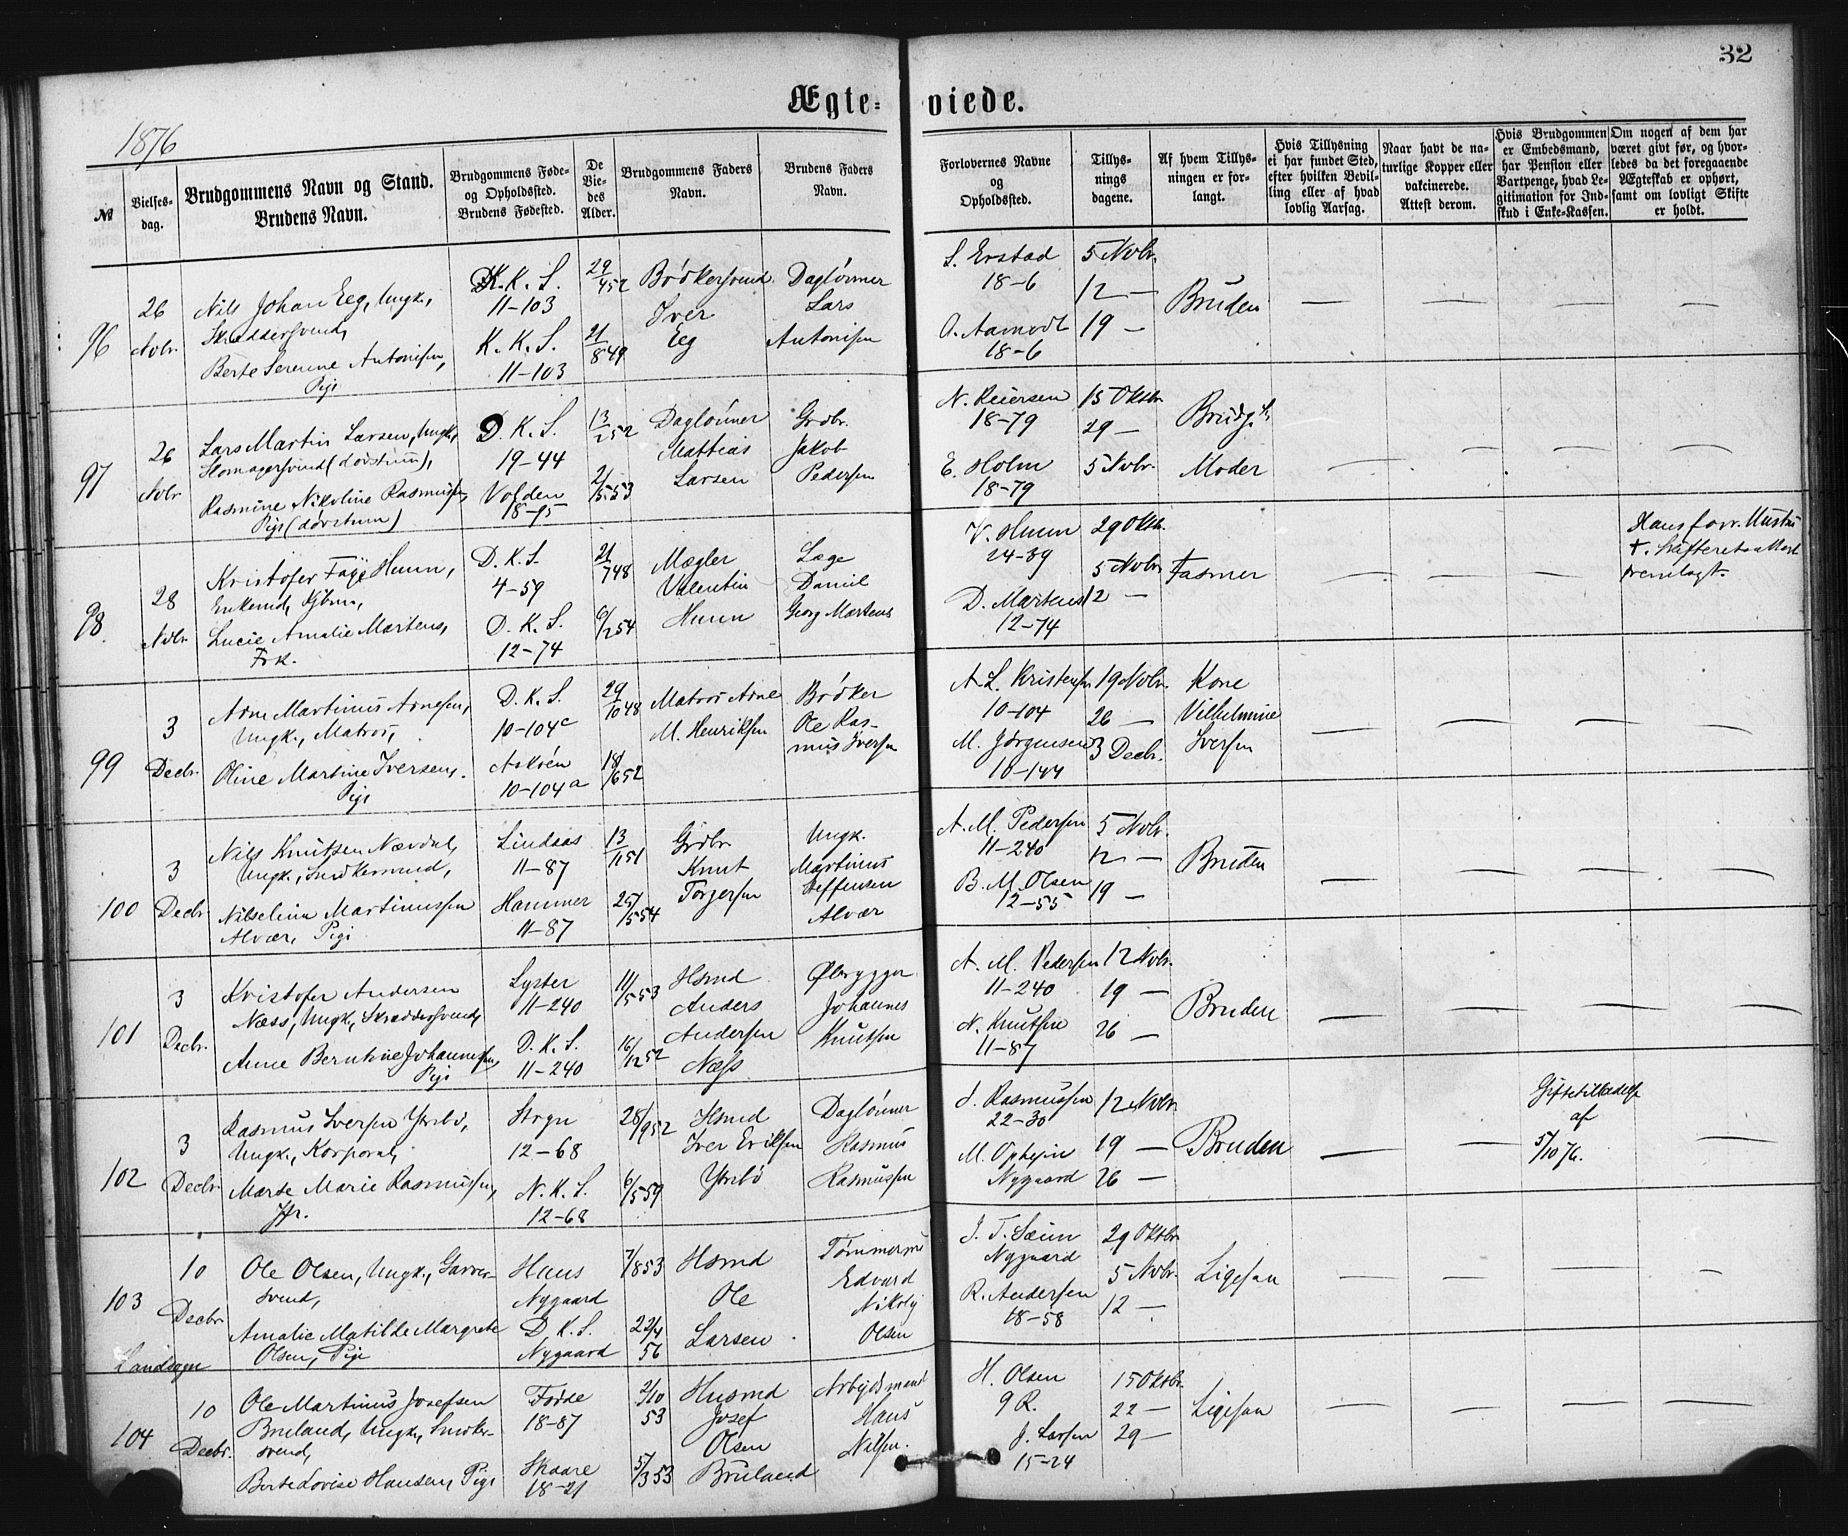 32
Ægte- viede.
1876
№
Vielses-
dag.
Brudgommens Navn og Stand.
Brudens Navn.
Brudgommens Føde-
og Opholdssted.
Brudens Fødested.
De
Vie-
des
Alder.
Brudgommens Faders
Navn.
Brudens Faders
Navn.
Forlovernes Navne
og
Opholdssted.
Tillys-
nings
dagene.
Af hvem Tillys-
ningen er for-
langt.
Hvis Tillysning
ei har fundet Sted,
efter hvilken Bevil-
ling eller af hvad
lovlig Aarsag.
Naar havt de na-
turlige Kopper eller
vakcinerede.
Attest derom.
Hvis Brudgommen
er Embedsmand,
har Pension eller
Vartpenge, hvad Le-
gitimation for Ind-
skud i Enke-Kassen.
Om nogen af dem har
været givt før, og hvor-
ledes da det foregaaende
Ægteskab er ophørt,
samt om lovligt Skifte
er holdt.
96
26
Novbr.
Nils Johan Eeg, Ungk.,
Skræddersvend,
Berte Serenne Antonisen,
Pige
K. K. S.
11-103
K. K. S.
11-103
29/4 52
21/8 49
Brøkersvend
Iver
Eeg
Daglønner
Lars
Antonisen
S. Erstad
18-6
O. Aamodt
18-6
5 Novbr.
12 —
19 —
Bruden
97
26
Novbr
Lars Martin Larsen, Ungk.,
Skomagersvend (døvstum),
Rasmine Nikoline Rasmussen,
Pige (døvstum)
D. K. S.
19-44
Volden
18-95
13/2 52
2/5 53
Daglønner
Mattias
Larsen
Grdbr.
Jakob
Pedersen
N. Reiersen
18-79
E. Holm
18-79
15 Oktbr.
29 —
5 Novbr.
Brudg.s
Moder
98.
28
Novbr
Kristofer Faye Hunn,
Enkemd, Kjbm.,
Lucie Amalie Martens,
Frk.
D. K. S.
4-59
D. K. S.
12-74
21/7 48
6/2 54
Mægler
Valentin
Hunn
Læge
Daniel
Georg Martens
V. Hunn
24-89
D. Martens
12-74
29 Oktbr.
5 Novbr
12 —
Fasmer
Hans forr. Hustru
†. Skifteretsattest
fremlagt.
99
3
Decbr.
Arne Martinus Arnesen,
Ungk., Matros,
Oline Martine Iversen,
Pige
D. K. S.
10-104c
Askvén
10-104a
29/10 48
18/6 52
Matros Arne
M. Henriksen
Brøker
Ole Ras-
mus Iversen
A. L. Kristensen
10-104
M. Jørgensen
10-144
19 Novbr.
26 —
3 Decbr.
Kone
Vilhelmine
Iversen
100
3
Decbr
Nils Knutsen Nævdal,
Ungk., Snedkersvend,
Nilselina Martinussen
Alvær, Pige
Lindaas
11-87
Hammer
11-87
13/11 51
25/5 54
Grdbr
Knut
Torgersen
Ungk.
Martinus
Steffensen
Alvær
A. M. Pedersen
11-240
B. M. Olsen
12-55
5 Novbr.
12 —
19 —
Bruden
101
3
Decbr.
Kristofer Andersen
Næss, Ungk., Skræddersvend,
Anne Berntine Johannessen,
Pige
Lyster
11-240
D. K. S.
11-240
11/5 53
16/12 52
Hsmd
Anders
Andersen
Næss
Ølbrygger
Johannes
Knutsen
A. M. Pedersen
11-240
N. Knutsen
11-87
12 Novbr.
19 —
26 —
Bruden
102
3
Decbr.
Rasmus Iversen Ytrebø,
Ungk., Korporal,
Marte Marie Rasmussen,
Jfr.
Stryn
12-68
N. K. S.
12-68
28/9 52
6/5 59
Hsmd
Iver Eriksen
Ytrebø
Daglønner
Rasmus
Rasmussen
J. Rasmussen
22-30
M. Opheim
Nygaard
12 Novbr
19 —
26 —
Bruden
Giftetilladelse
af
5/10 76.
103
10
Decbr
Landsogn
Ole Olsen, Ungk., Garver-
svend,
Amalie Matilde Margrete
Olsen, Pige
Haus
Nygaard
D. K. S.
Nygaard
7/8 53
22/4
56
Hsmd
Ole
Larsen
Tømmermd
Edvard
Nikolij
Olsen
J. T. Sæim
Nygaard
R. Andersen
18-58
29 Oktbr
5 Novbr.
12 —
Ligesaa
104
10
Decbr.
Ole Martinus Josefsen
Bruland, Ungk., Snedker-
svend,
Berte Lovise Hansen, Pige
Førde
18-87
Skaare
18-21
2/10
53
5/3 53
Husmd
Josef
Olsen
Bruland
Arbejdsmand
Hans
Nilsen.
H. Olsen
9 R.
J. Larsen
15-24
15 Oktbr.
22 —
29 —
Ligesaa